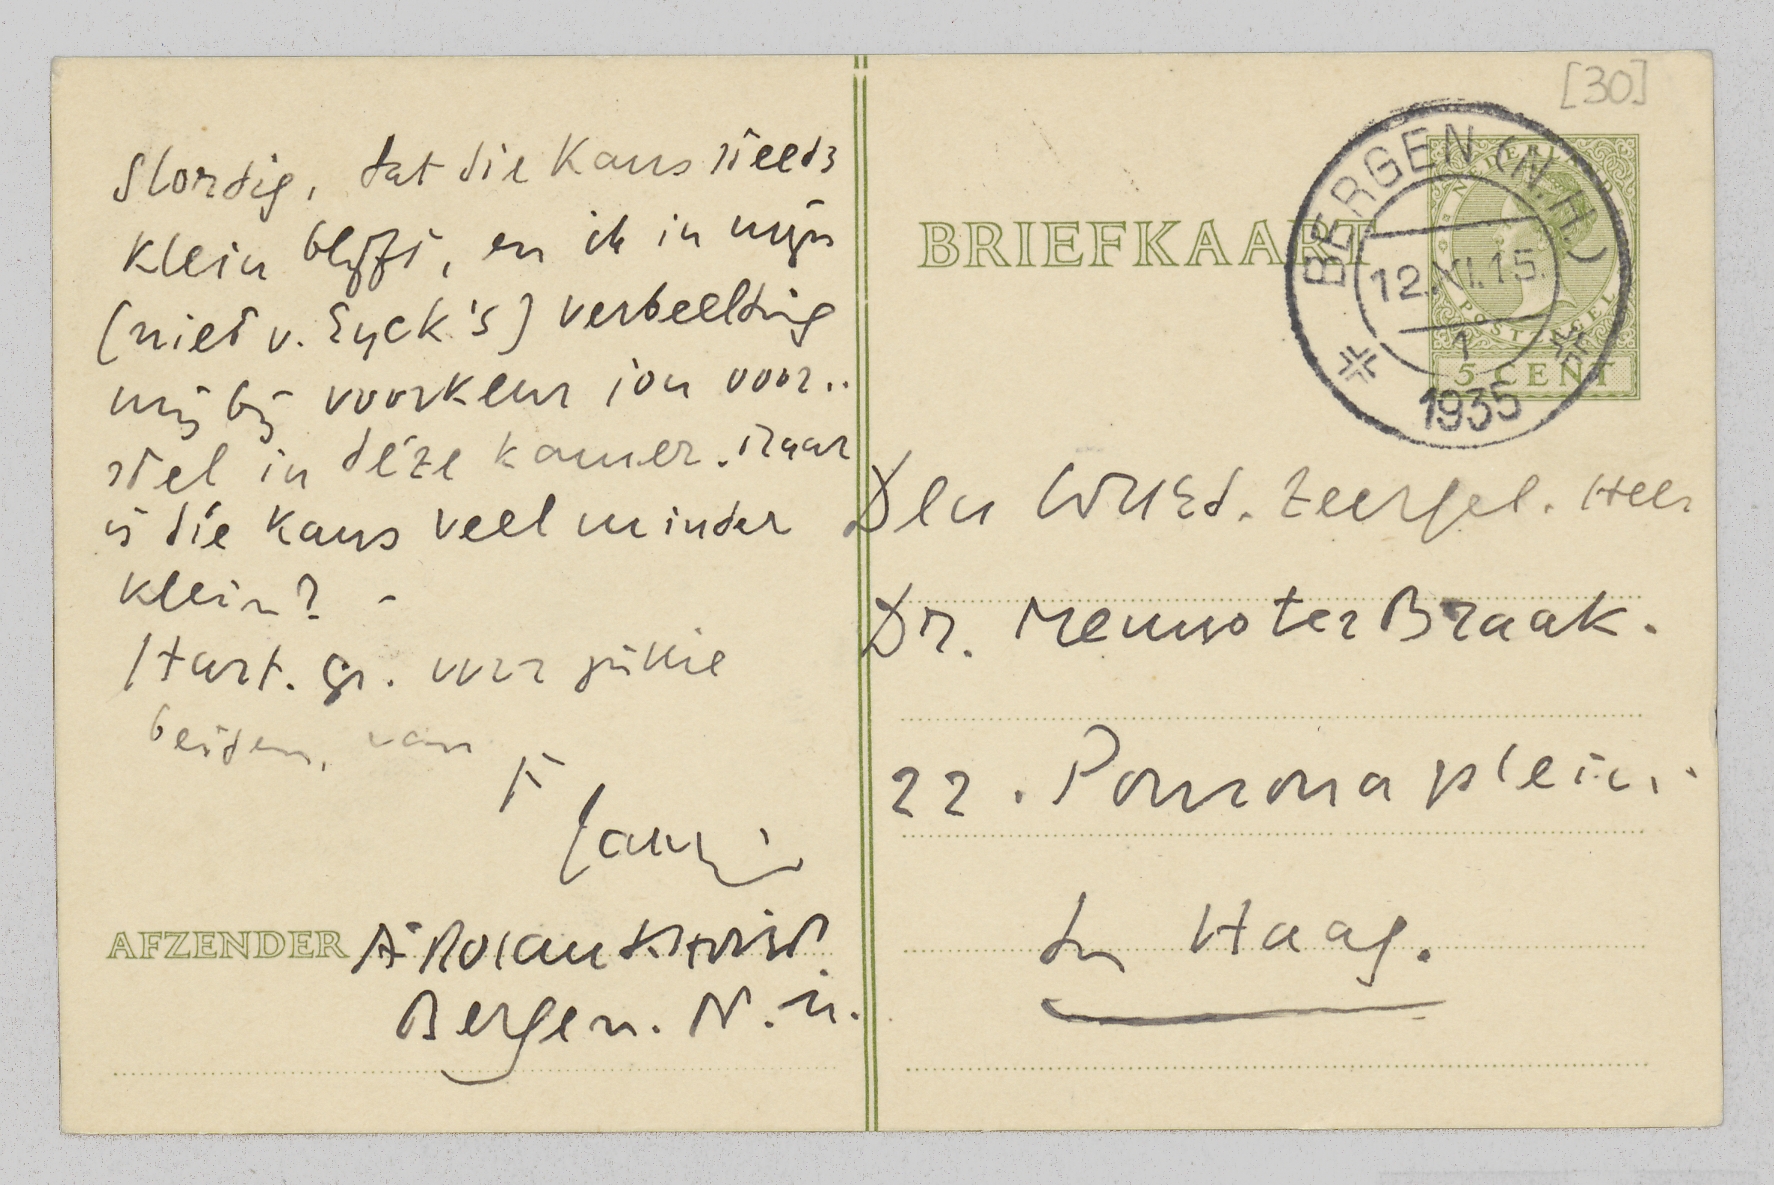 Slordig, dat die kans steeds
klein blijft, en ik in mijn
(niet v. Eyck's) verbeelding
mij bij voorkeur jou voor..
stel in déze kamer. Maar
is die kans veel minder
klein? -
Hart. gr. voor jullie
beiden, van
Jany
AFZENDER A Roland Holst.
Bergen. N.H.
[30]
BRIEFKAART
NEDERLAND
POSTZEGEL
5 CENT
BERGEN (N.H.)
12.XI.15.
1
1935
Den WelEd. Zeergel. Heer
Dr. Menno ter Braak.
22. Pomonaplein.
Den Haag.